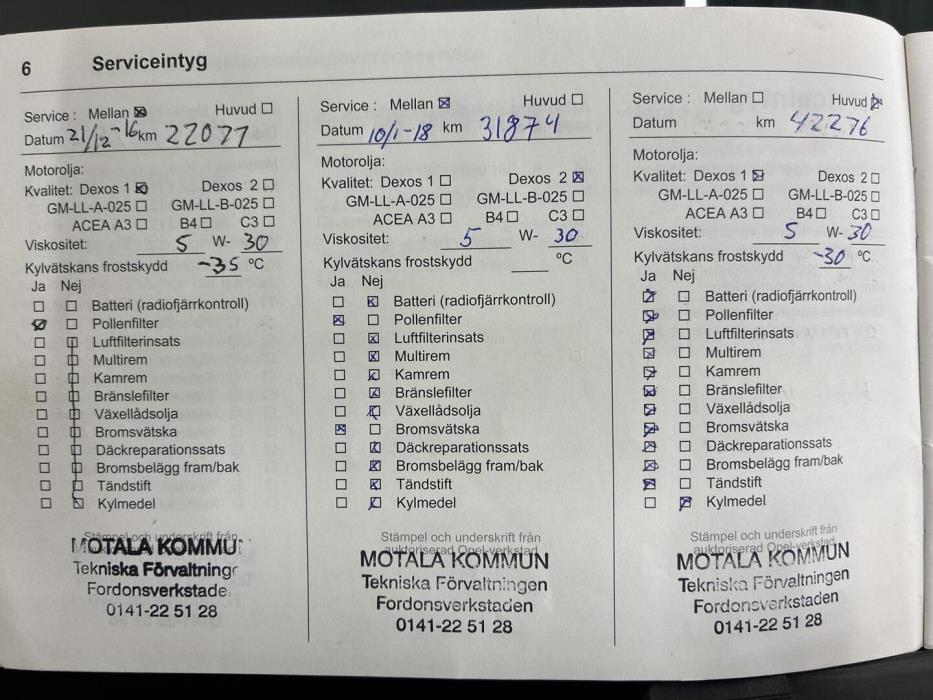 6 Serviceintyg
Service : Mellan ☒ Huvud ☐
Datum 21/12-16 km 22077
Motorolja:
Kvalitet: Dexos 1 ☒ Dexos 2 ☐
GM-LL-A-025 ☐ GM-LL-B-025 ☐
ACEA A3 ☐ B4 ☐ C3 ☐
Viskositet: 5 W- 30
Kylvätskans frostskydd -35 °C
Ja Nej
☐ ☐ Batteri (radiofjärrkontroll)
☒ ☐ Pollenfilter
☐ ☒ Luftfilterinsats
☐ ☒ Multirem
☐ ☒ Kamrem
☐ ☒ Bränslefilter
☐ ☒ Växellådsolja
☐ ☒ Bromsvätska
☐ ☒ Däckreparationssats
☐ ☒ Bromsbelägg fram/bak
☐ ☒ Tändstift
☐ ☒ Kylmedel
Stämpel och underskrift från
MOTALA KOMMU
Tekniska Förvaltning
Fordonsverkstade
0141-22 51 28
Service : Mellan ☒ Huvud ☐
Datum 10/1-18 km 31874
Motorolja:
Kvalitet: Dexos 1 ☐ Dexos 2 ☒
GM-LL-A-025 ☐ GM-LL-B-025 ☐
ACEA A3 ☐ B4 ☐ C3 ☐
Viskositet: 5 W- 30
Kylvätskans frostskydd °C
Ja Nej
☐ ☒ Batteri (radiofjärrkontroll)
☒ ☐ Pollenfilter
☐ ☒ Luftfilterinsats
☐ ☒ Multirem
☐ ☒ Kamrem
☐ ☒ Bränslefilter
☐ ☒ Växellådsolja
☒ ☐ Bromsvätska
☐ ☒ Däckreparationssats
☐ ☒ Bromsbelägg fram/bak
☐ ☒ Tändstift
☐ ☒ Kylmedel
Stämpel och underskrift från
auktoriserad Opel-verkstad
MOTALA KOMMUN
Tekniska Förvaltningen
Fordonsverkstaden
0141-22 51 28
Service : Mellan ☐ Huvud ☒
Datum km 42276
Motorolja:
Kvalitet: Dexos 1 ☒ Dexos 2 ☐
GM-LL-A-025 ☐ GM-LL-B-025 ☐
ACEA A3 ☐ B4 ☐ C3 ☐
Viskositet: 5 W- 30
Kylvätskans frostskydd -30 °C
Ja Nej
☒ ☐ Batteri (radiofjärrkontroll)
☒ ☐ Pollenfilter
☒ ☐ Luftfilterinsats
☒ ☐ Multirem
☒ ☐ Kamrem
☒ ☐ Bränslefilter
☒ ☐ Växellådsolja
☒ ☐ Bromsvätska
☒ ☐ Däckreparationssats
☒ ☐ Bromsbelägg fram/bak
☒ ☐ Tändstift
☐ ☒ Kylmedel
Stämpel och underskrift från
auktoriserad Opel-verkstad
MOTALA KOMMUN
Tekniska Förvaltningen
Fordonsverkstaden
0141-22 51 28